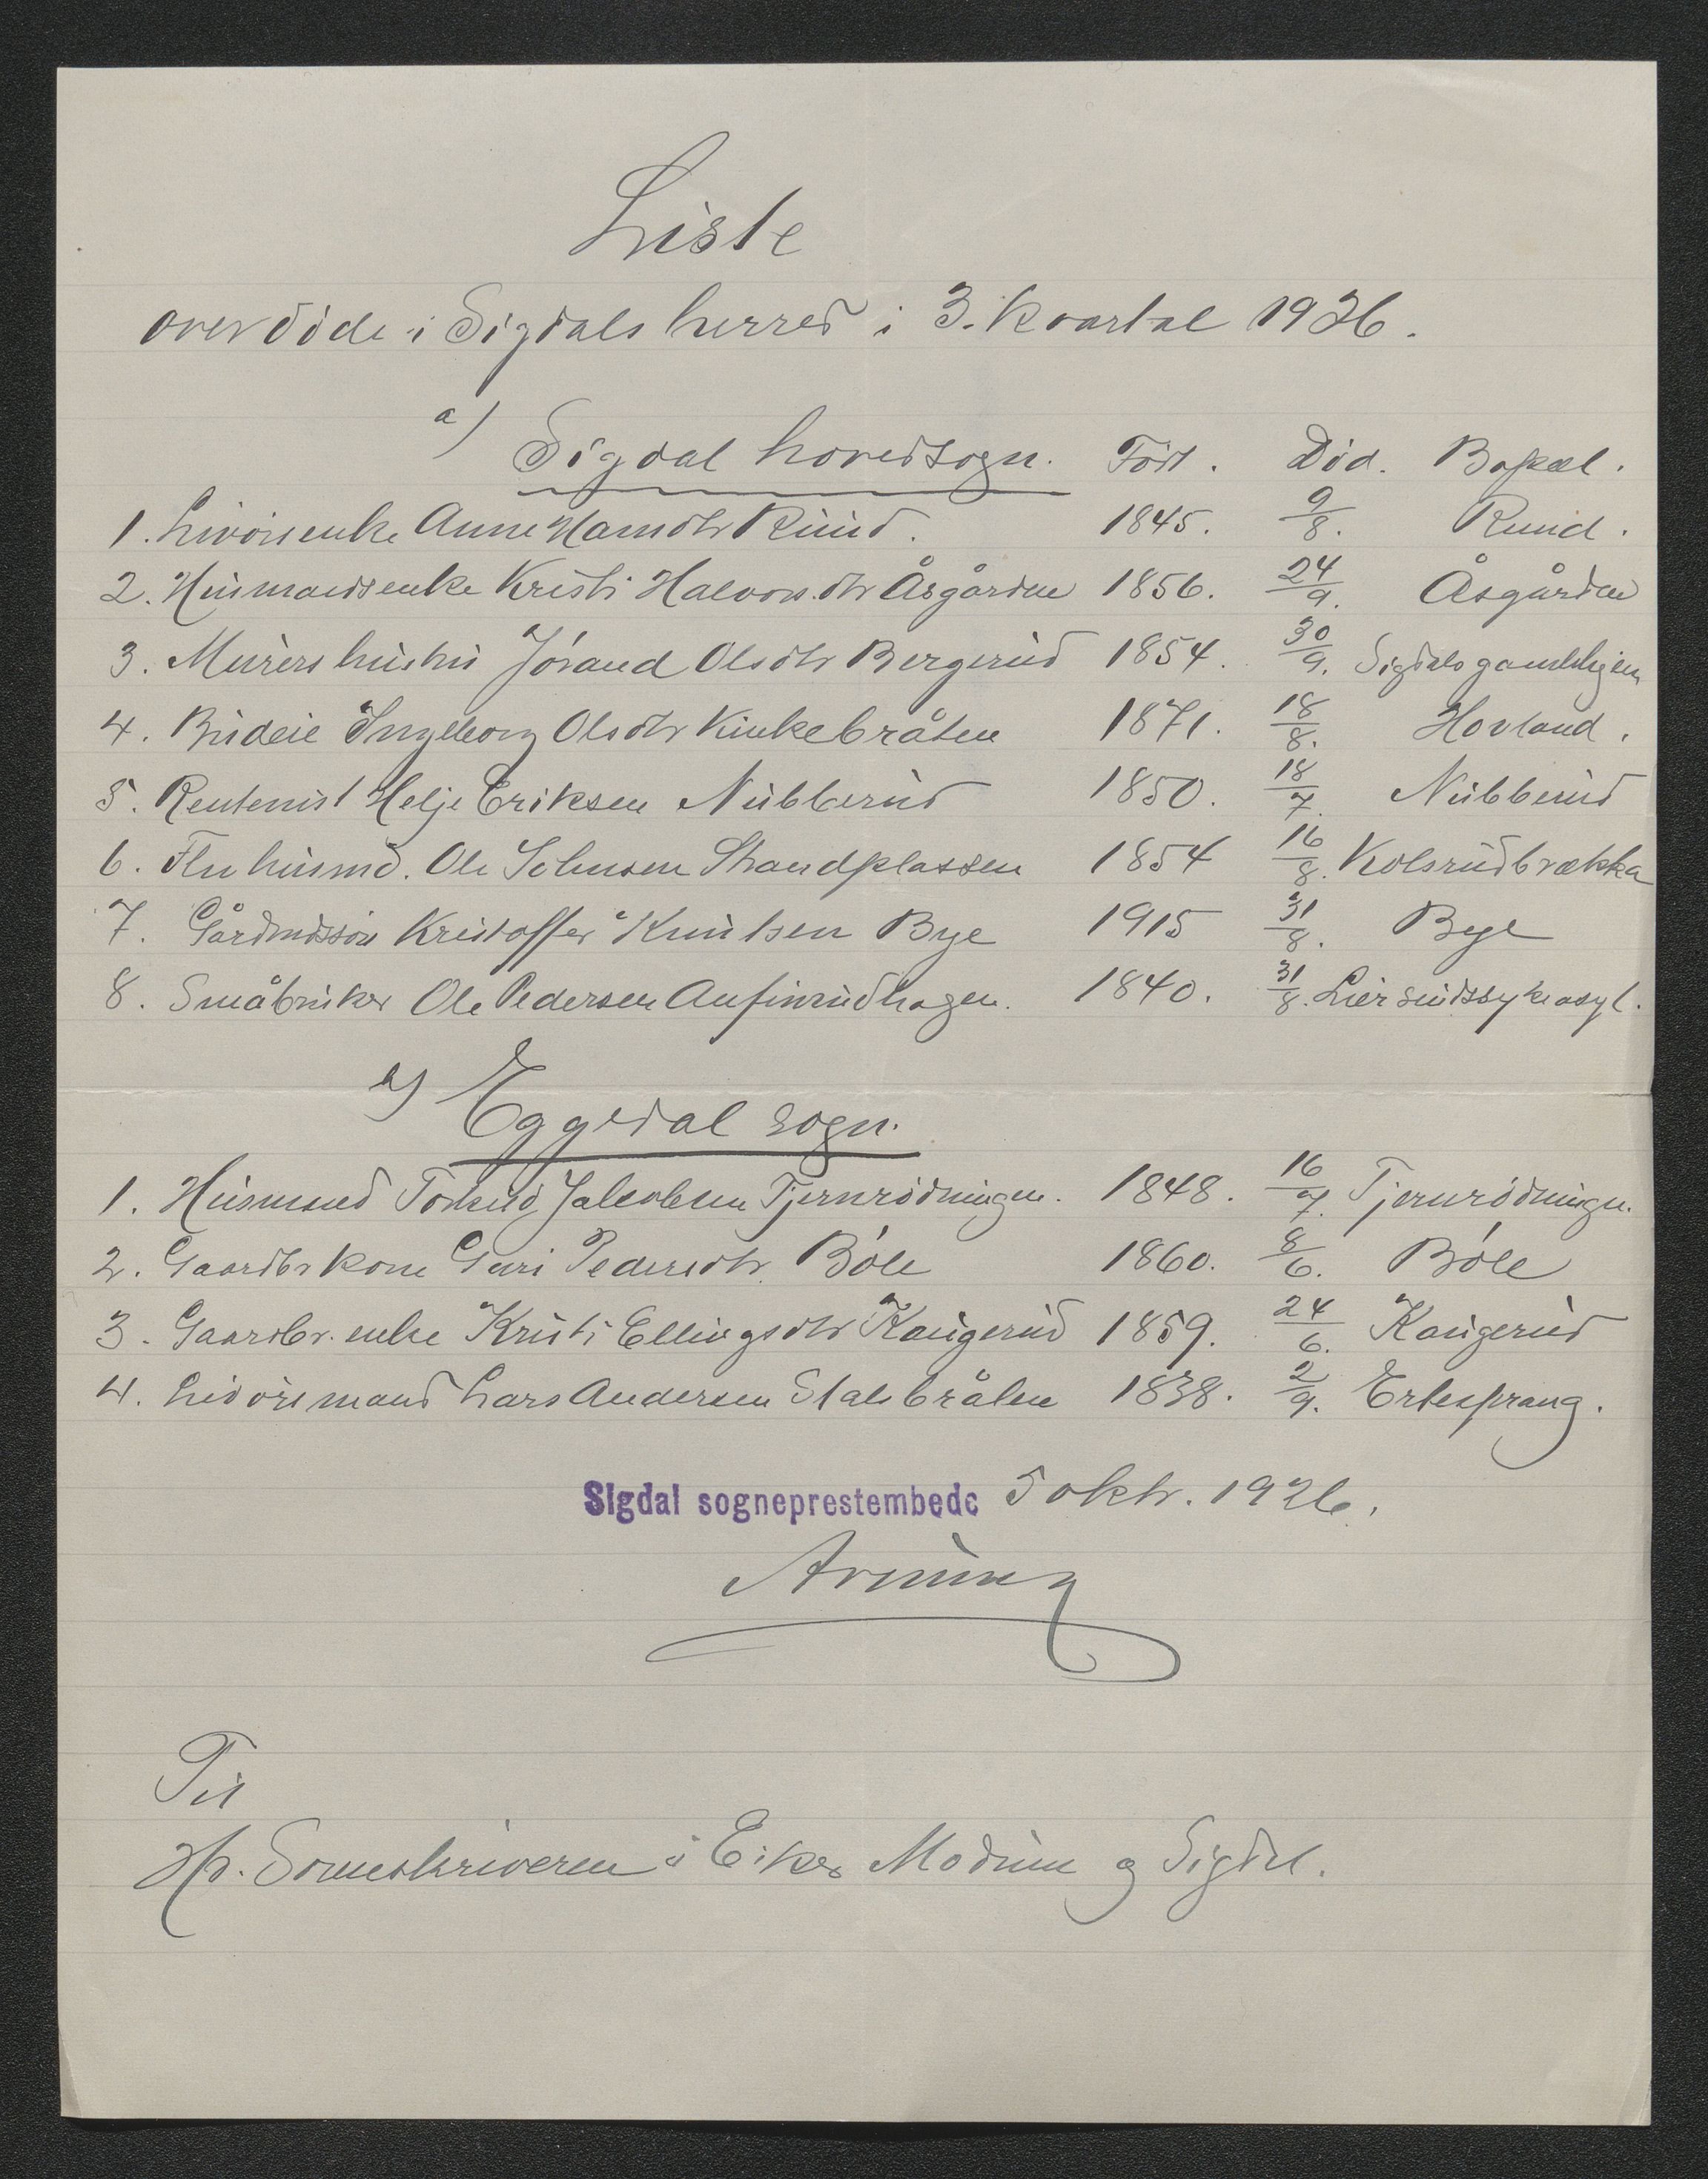 Liste
over döde i Sigdals herred i 3. kvartal 1926.
a) Sigdal hovedsogn. Född. Död. Bopæl.
1. Livörsenke Anne Hansdtr Ruud. 1845. 9/8. Ruud.
2. Husmandsenke Kristi Halvorsdtr Åsgården 1856. 24/9. Åsgården
3. Murers hustru Jórand Olsdtr Bergerud 1854. 30/9. Sigdals gamlehjem
4. Budeie Ingeborg Olsdtr Kinkebråten 1871. 18/8. Hovland.
5. Rentenist Helje Eriksen Nubberud 1850. 18/7. Nubberud
6. Flu husmd. Ole Johnsen Strandplassen 1854 16/8. Kolsrudbrækka
7. Gårdmdssön Kristoffer Knutsen Bye 1915 31/8. Bye
8. Småbruker Ole Pedersen Anfinrudhagen. 1840. 31/8. Lier sindssykeasyl.
b) Eggedal sogn.
1. Husmand Torkild Jakobsen Tjernrödningen. 1848. 16/7. Tjernrödningen.
2. Gaardbr kone Guri Pedersdtr. Bóle 1860. 8/6. Bóle
3. Gaardbr. enke Kristi Ellingsdtr Kaugerud 1859. 24/6. Kaugerud
4. Livörsmand Lars Andersen Stalsbråten 1838. 2/9. Ertesprang.
Sigdal sogneprestembede 5 oktr. 1926.
Til
Hr. Sorenskriveren i Eiker Modum og Sigdal.